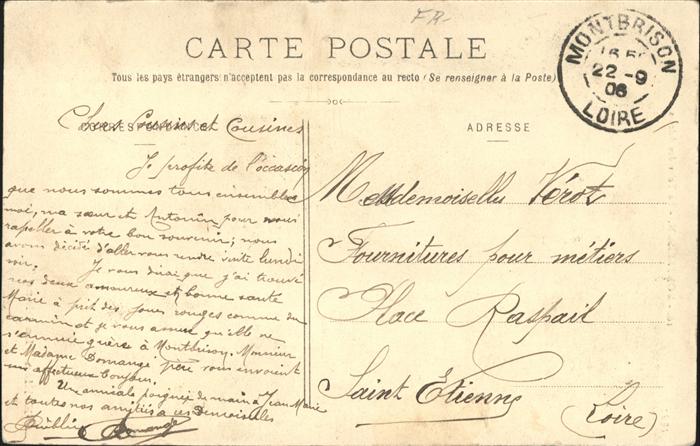 FR-
CARTE POSTALE
Tous les pays étrangers n'acceptent pas la correspondance au recto (Se renseigner à la Poste)
MONTBRISON
22 - 9
06
LOIRE
CORRESPONDANCE
Chers Cousins et Cousines
Je profite de l'occasion
que nous sommes tous ensembles
moi, ma sœur et Antonin pour nous
rappeler à votre bon souvenir; nous
avons décidé d'aller vous rendre visite lundi
soir. Je vous dirai que j'ai trouvé
nos deux amoureux en bonne santé
Marie a pris des joues rouges comme du
carmin et je vous assure qu'elle ne
s'ennuie guère à Montbrison. Monsieur
et Madame Domange père vous envoient
un affectueux bonjour.
Une amicale poignée de main à Jean Marie
et toutes nos amitiés à ces Demoiselles
Domange
ADRESSE
Mesdemoiselles Vérot
Fournitures pour métiers
Place Raspail
Saint Étienne
(Loire)